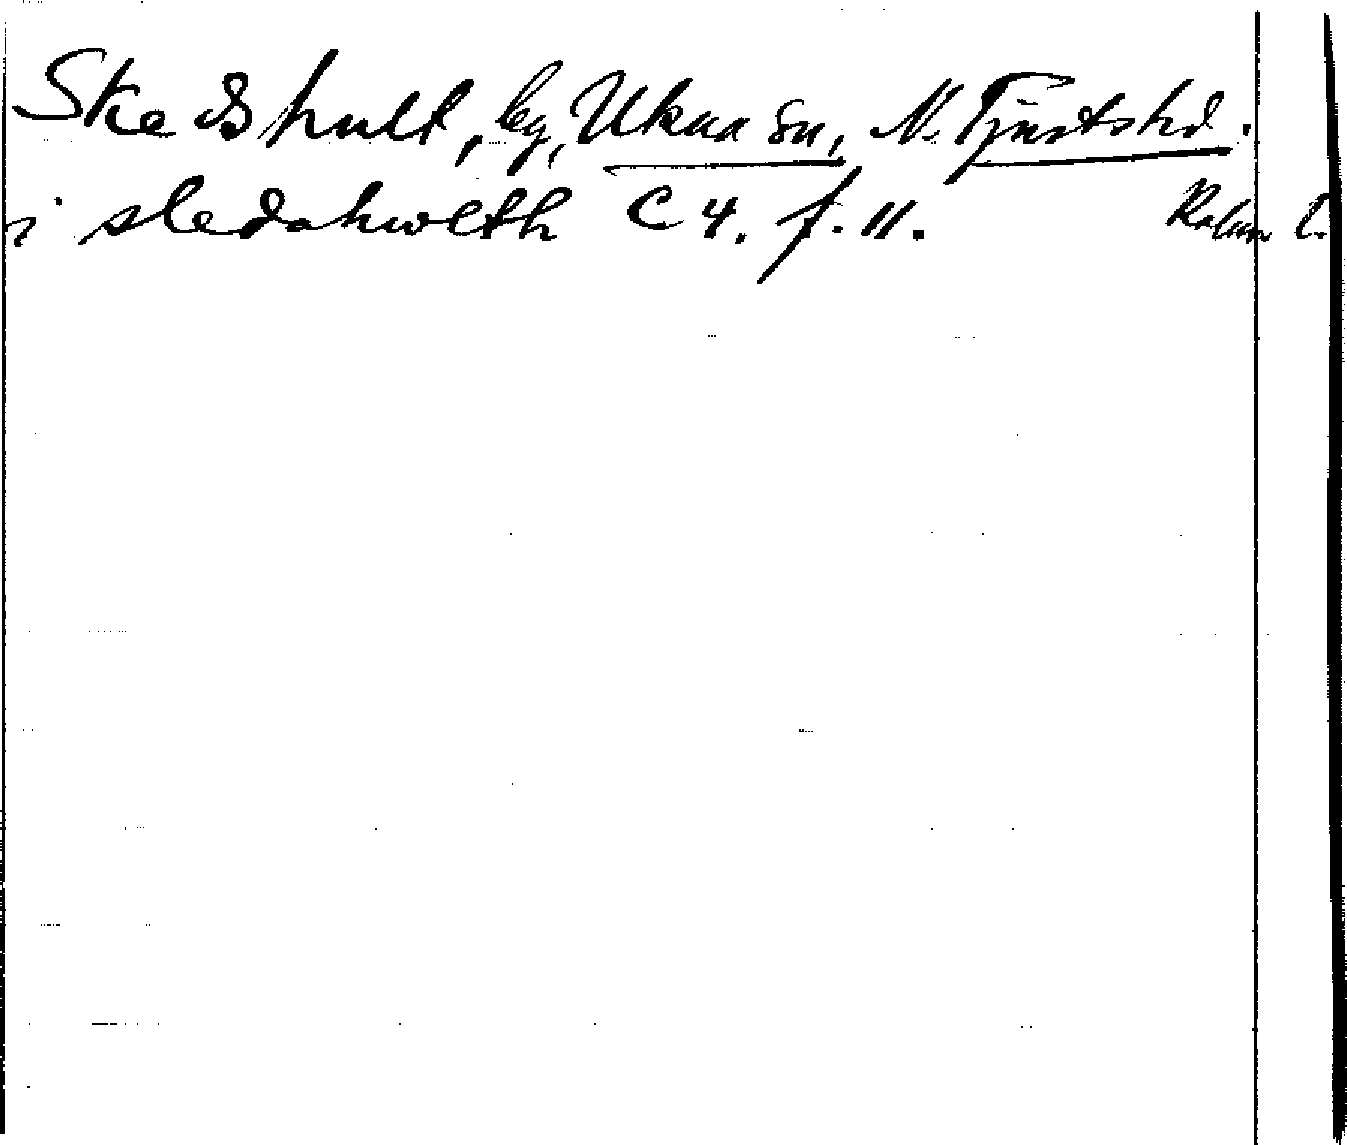 Skedshult, by, Ukna sn, N. Tjusts hd.
i sledahwlth C 4. f. 11.